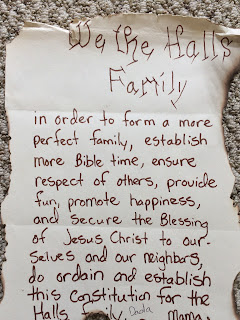 We the Halls
Family
in order to form a more
perfect family, establish
more Bible time, ensure
respect of others, provide
fun, promote happiness,
and secure the Blessing
of Jesus Christ to our-
selves and our neighbors,
do ordain and establish
this Constitution for the
Halls family. Dada mama